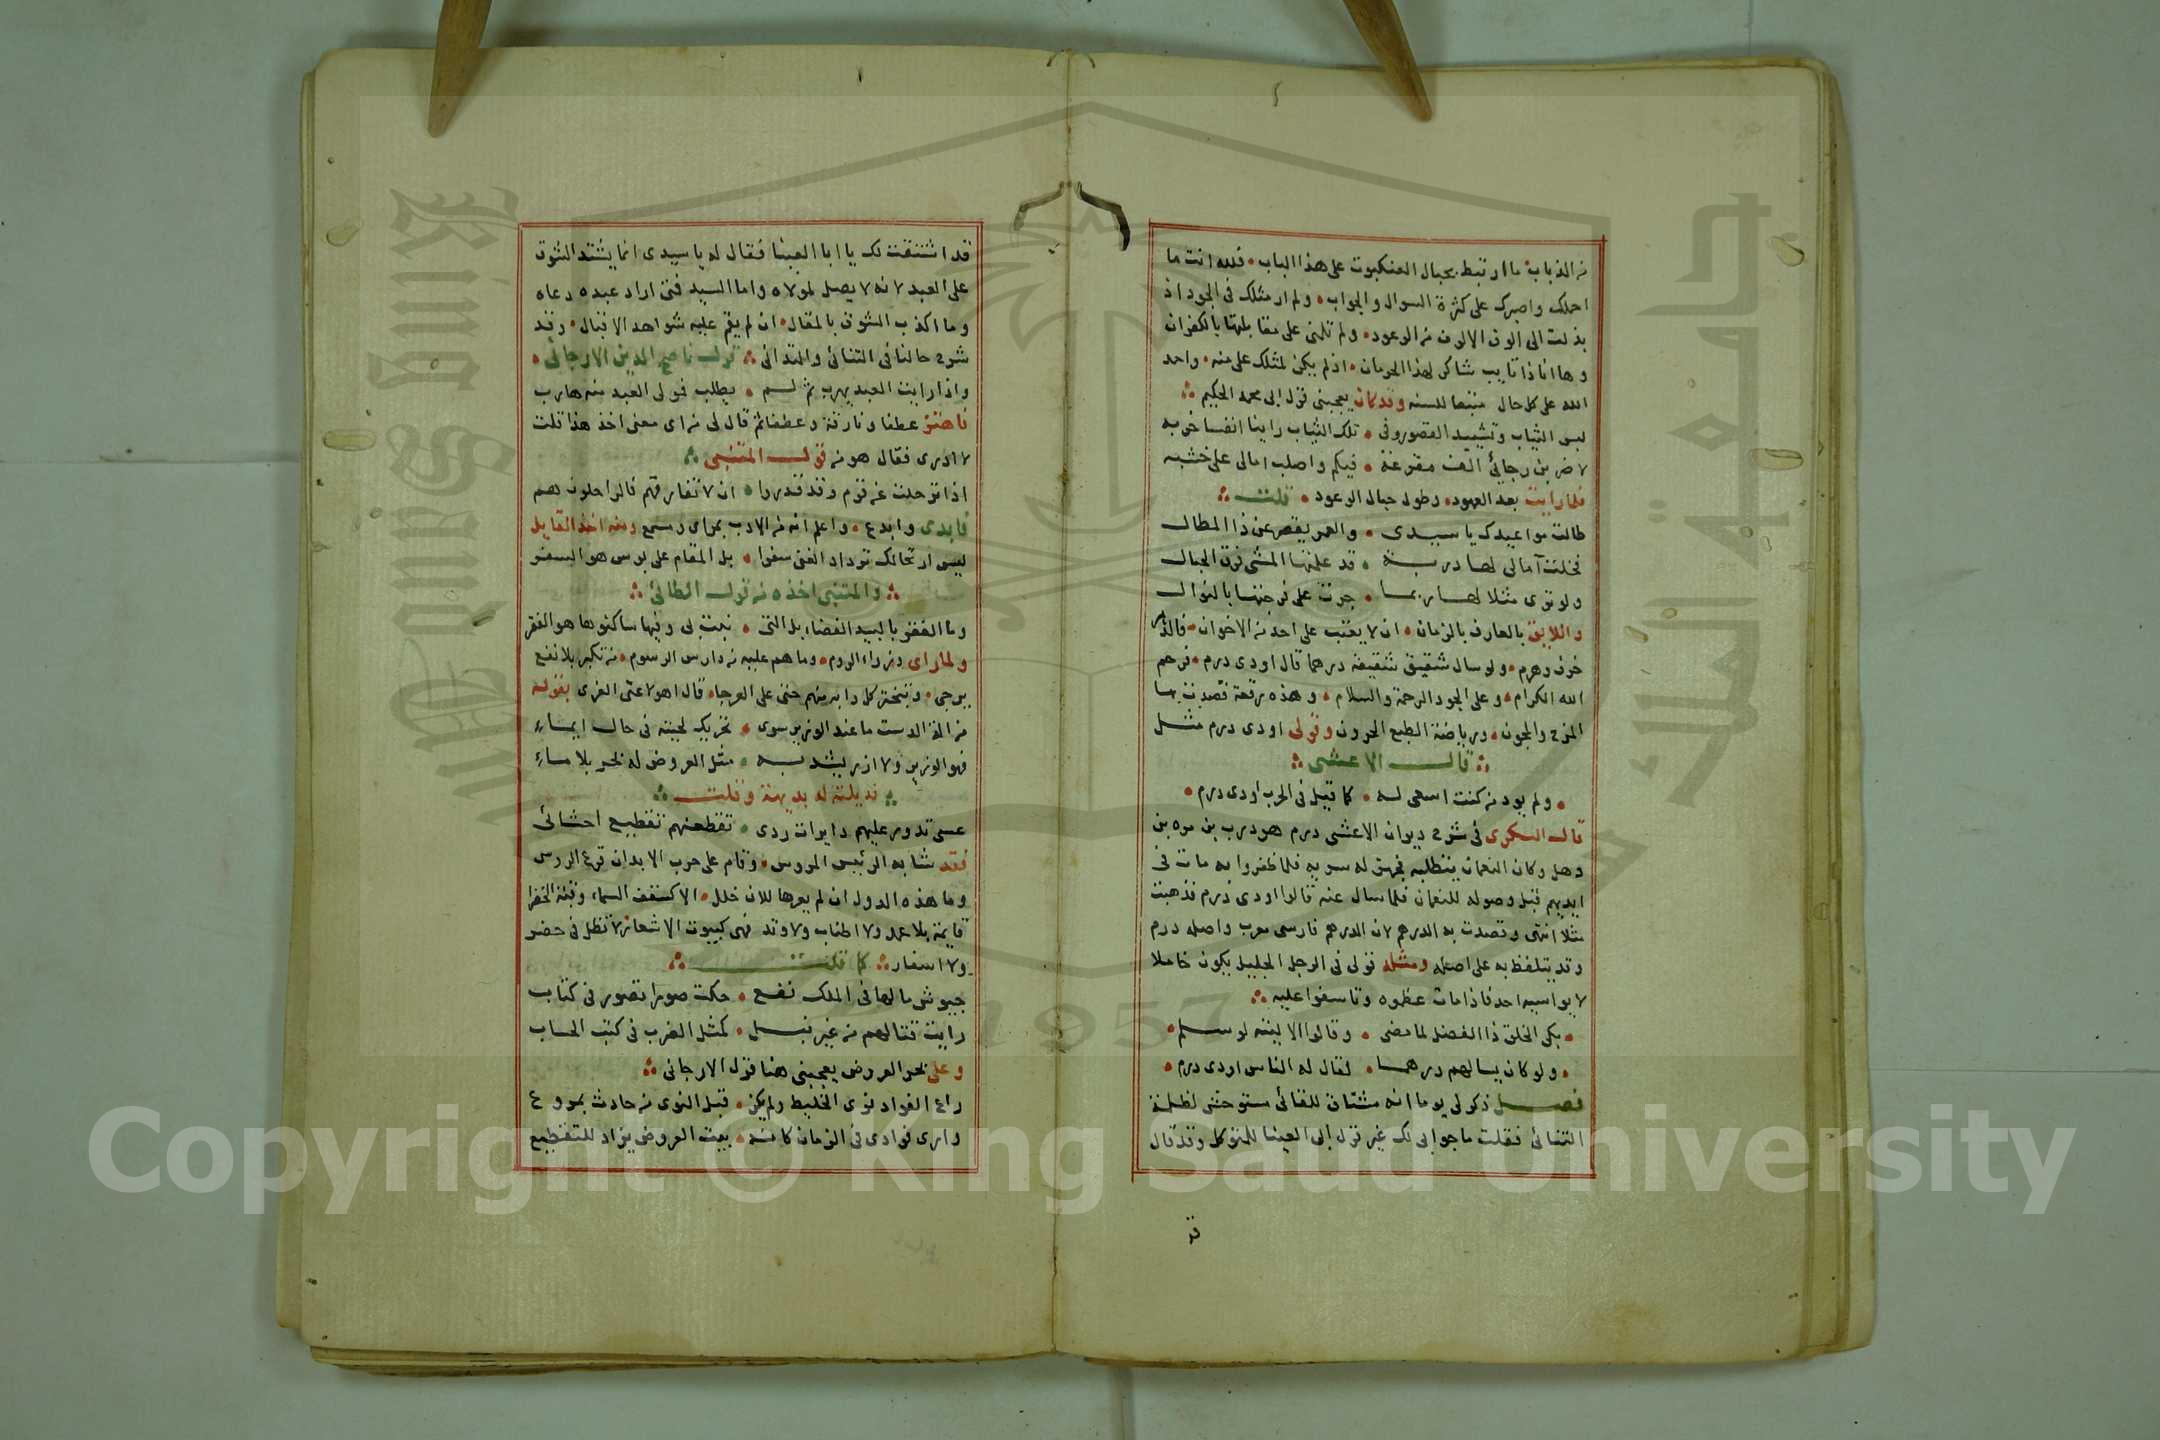 من الذباب ما ارتبط بحبال العنكبوت على هذا الباب فلله انت ما
احلك واصبرك على كثرة السوال والجواب ولم ار مثلك فى الجود اذ
بذلت الى الوف الالوف من الوعود ولم تلمنى على مقابلتها بالكفران
وها انا ذا تايب شاكر لهذا الحرمان اذ لم يكن لمثلك على منه واحد
الله على كل حال متبعا للسنه وقد كان يعجبنى قول ابى محمد الحكيم
لبس الثياب وتشييد القصور وفى تلك الثياب راينا انفسا خربه
لاضربن رجائى الف مقرعة فيكم واصلب امالى على خشبه
فلما رايت بعد العهود وطول حبال الوعود قلت
طالت مواعيدك يا سيدى والعمر يقصر عن ذا المطال
نخلت آمالى لها دربة قد علمتها المشى فوق الجبال
ولو ترى مثلا لها ربما جرت على فرجتها بالنوال
واللايق بالعارف بالزمان ان لا يعتب على احد من الاخوان فالدهر
خوف وهرم ولو سال شقيق شقيقه درهما قال اودى درم فرحم
الله الكرام وعلى الجود الرحمة والسلام وهذه رقعة قصدت بها
المزح والمجون ورياضة الطبع الحرون وقولى اودى درم مثل
قال الاعشى
ولم يود من كنت اسعى له كما قيل فى الحرب اودى درم
قال السكرى فى شرح ديوان الاعشى درم هو درب بن مره بن
دهل وكان النعمان يتطلبه فجهز له سريه فلما ظفروا به مات فى
ايديهم قبل وصوله للنعمان فلما سال عنه قالوا اودى درم فذهبت
مثلا انتهى وقصدت به الدرهم لان الدرهم فارسى معرب واصله درم
وقد يتلفظ به على اصله ومثله قولى فى الرجل الجليل يكون خاملا
لا يواسيه احد فاذا مات عظموه وتاسفوا عليه
بكى الخلق ذا الفضل لما مضى وقالوا الا ليته لو سلم
ولو كان يسالهم درهما لقال له الناس اودى درم
فصل ذكر لى يوما انه مشتاق للقائى مستوحش لظلمة
التنائى فقلت ما جوابى لك غير قول ابى العينا للمتوكل وقد قال
قد
قد اشتقت لك يا ابا العينا فقال له يا سيدى انما يشتد الشوق
على العبد لانه لا يصل لمولاه واما السيد فتى اراد عبده دعاه
وما اكذب الشوق بالمقال ان لم يقم عليه شواهد الاقبال وقد
شرح حالنا فى التنائى والتدانى قول ناصح الدين الارجانى
واذا رايت العبد يهرب ثم لم يطلب فمولى العبد منه هارب
فاهتز عطفا ونارقة وعطفا ثم قال لى من اى معنى اخذ هذا قلت
لا ادرى فقال هو من قول المتنبى
اذا ترحلت عن قوم وقد قدروا ان لا تفارقهم فالراحلون هم
فابدى وابدع واعلم انه من الادب بمراى ومسمع ومنه اخذ القايل
ليس ارتحالك تزداد الغنى سفرا بل المقام على بوس هو السفر
والمتنبى اخذه من قول الطائى
وما القفر بالبيد الفضاء بل التى نبت لى وفيها ساكنوها هو القفر
ولما راى وزراء الروم وما هم عليه من دارس الرسوم من تكبر بلا نفع
يرجى وتبختر كل دابه منهم حتى على العرجا قال اهولا عنى الغزى بقوله
من الة الدست ما عند الوزير سوى تحريك لحيته فى حال ايماء
فهو الوزير ولا ازر يشد به مثل العروض له بحر بلا ماء
فذيلته له بديهة وقلت
عسى تدور عليهم دايرات ردى تقطعنهم تقطيع احشائى
فقد شابه الرئيس المروس وقام على حرب الابدان قرع الروس
وما هذه الدول ان لم يعرها للان خلل الا كسقف السماء وقبة الخضرا
قايمة بلا عمد ولا اطناب ولا وتد فهى كبيوت الاشعار لا تظل فى حضر
ولا اسفار كما قلت
جيوش ما لها فى الملك نفع حكت صورا تصور فى كتاب
رايت قتالهم من غير نبل كمثل الضرب فى كتب الحساب
وعلى بحر العروض يعجبنى هنا قول الارجانى
راع الفواد نوى الخليط ولم يكن قبل النوى من حادث بمروع
وارى فوادى فى الزمان كانه بيت العروض يراد للتقطيع
Copyright © King Saud University
King Saud University
جامعة الملك سعود
1957